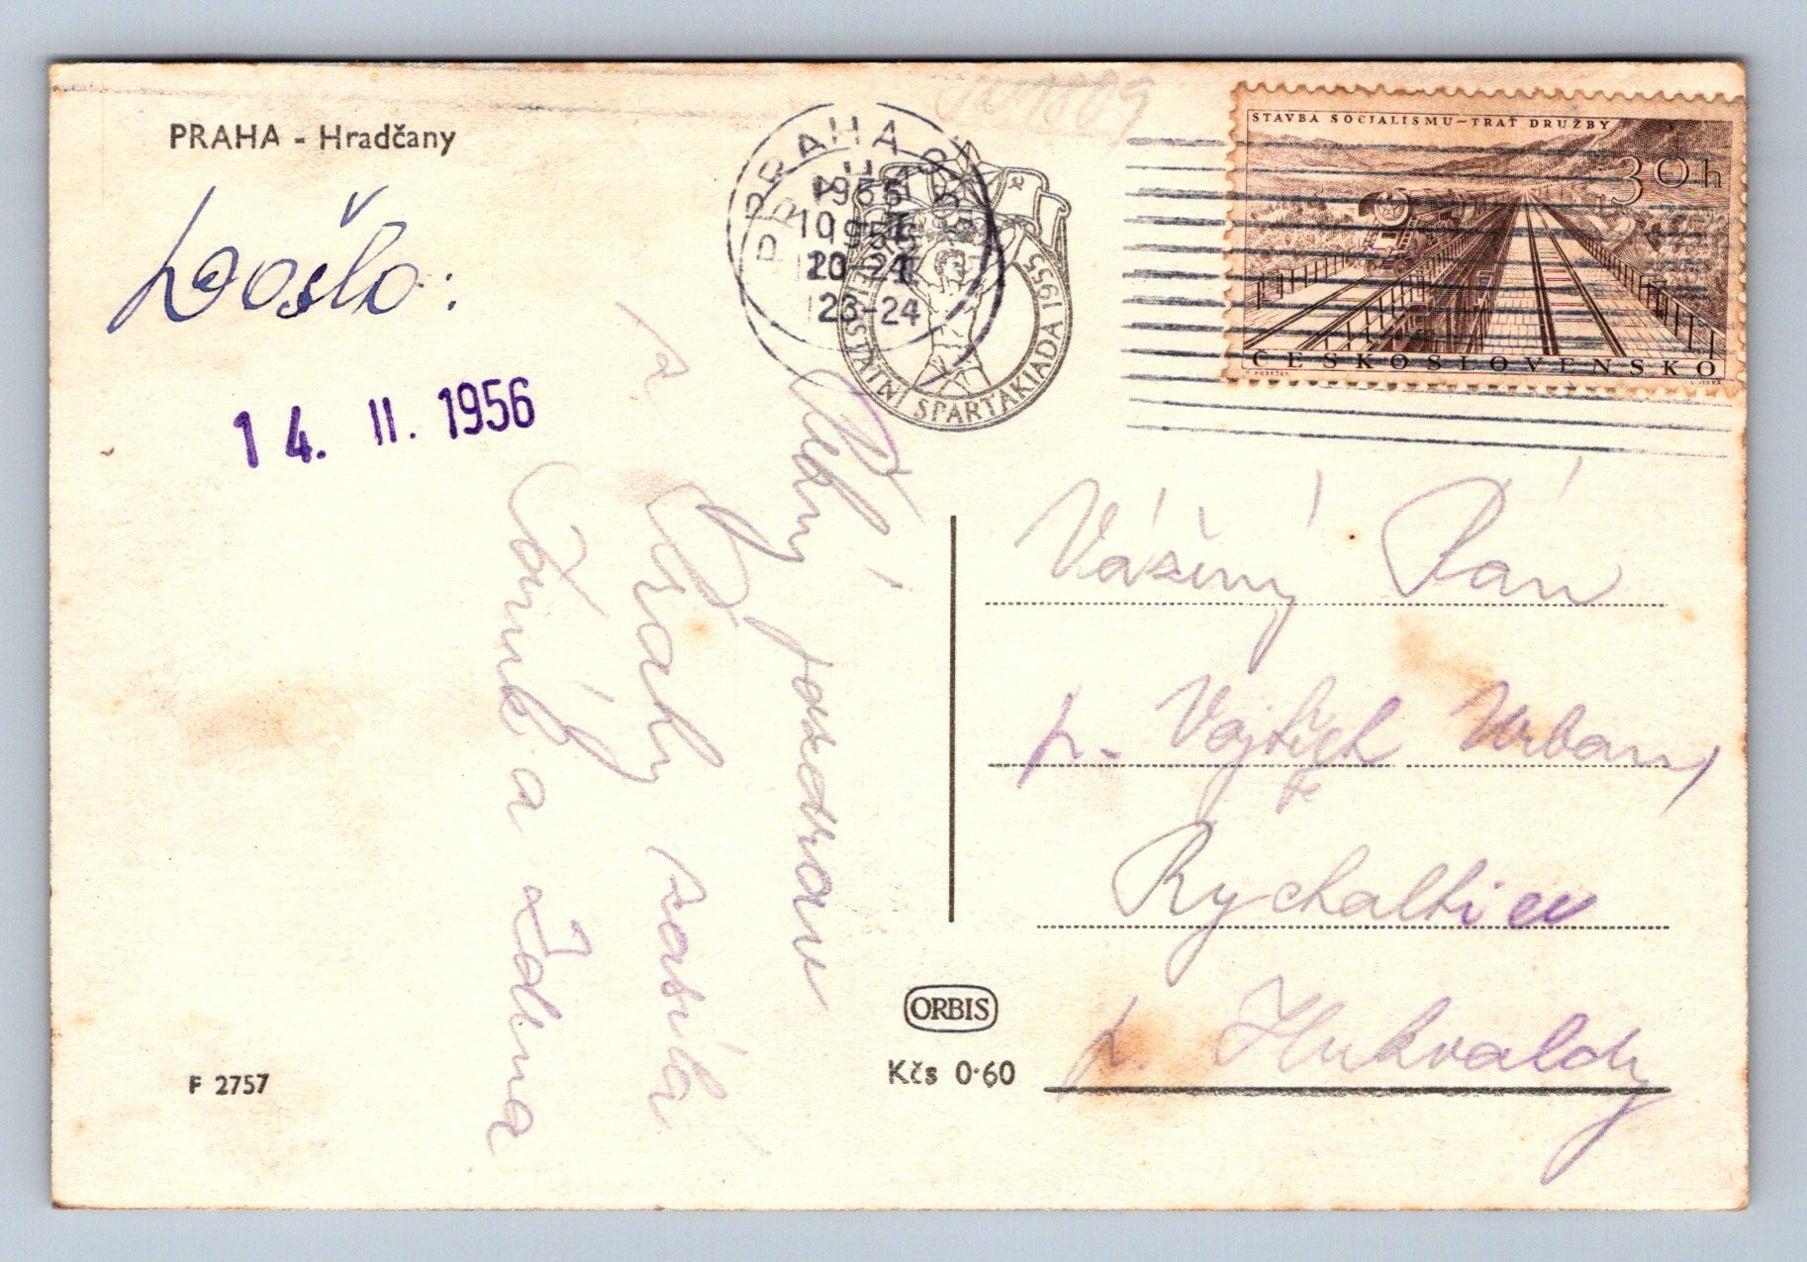 PRAHA - Hradčany
Došlo:
14. II. 1956
PRAHA
1955
10
1956
20-21
23-24
CELOSTÁTNÍ SPARTAKIADA 1955
STAVBA SOCIALISMU–TRAŤ DRUŽBY
30h
ČESKOSLOVENSKO
pozdrav
z Prahy zasílá
a Zdena
Vážený Pán
p. Vojtěch Urban,
Rychaltice
p. Hukvaldy
ORBIS
Kčs 0·60
F 2757